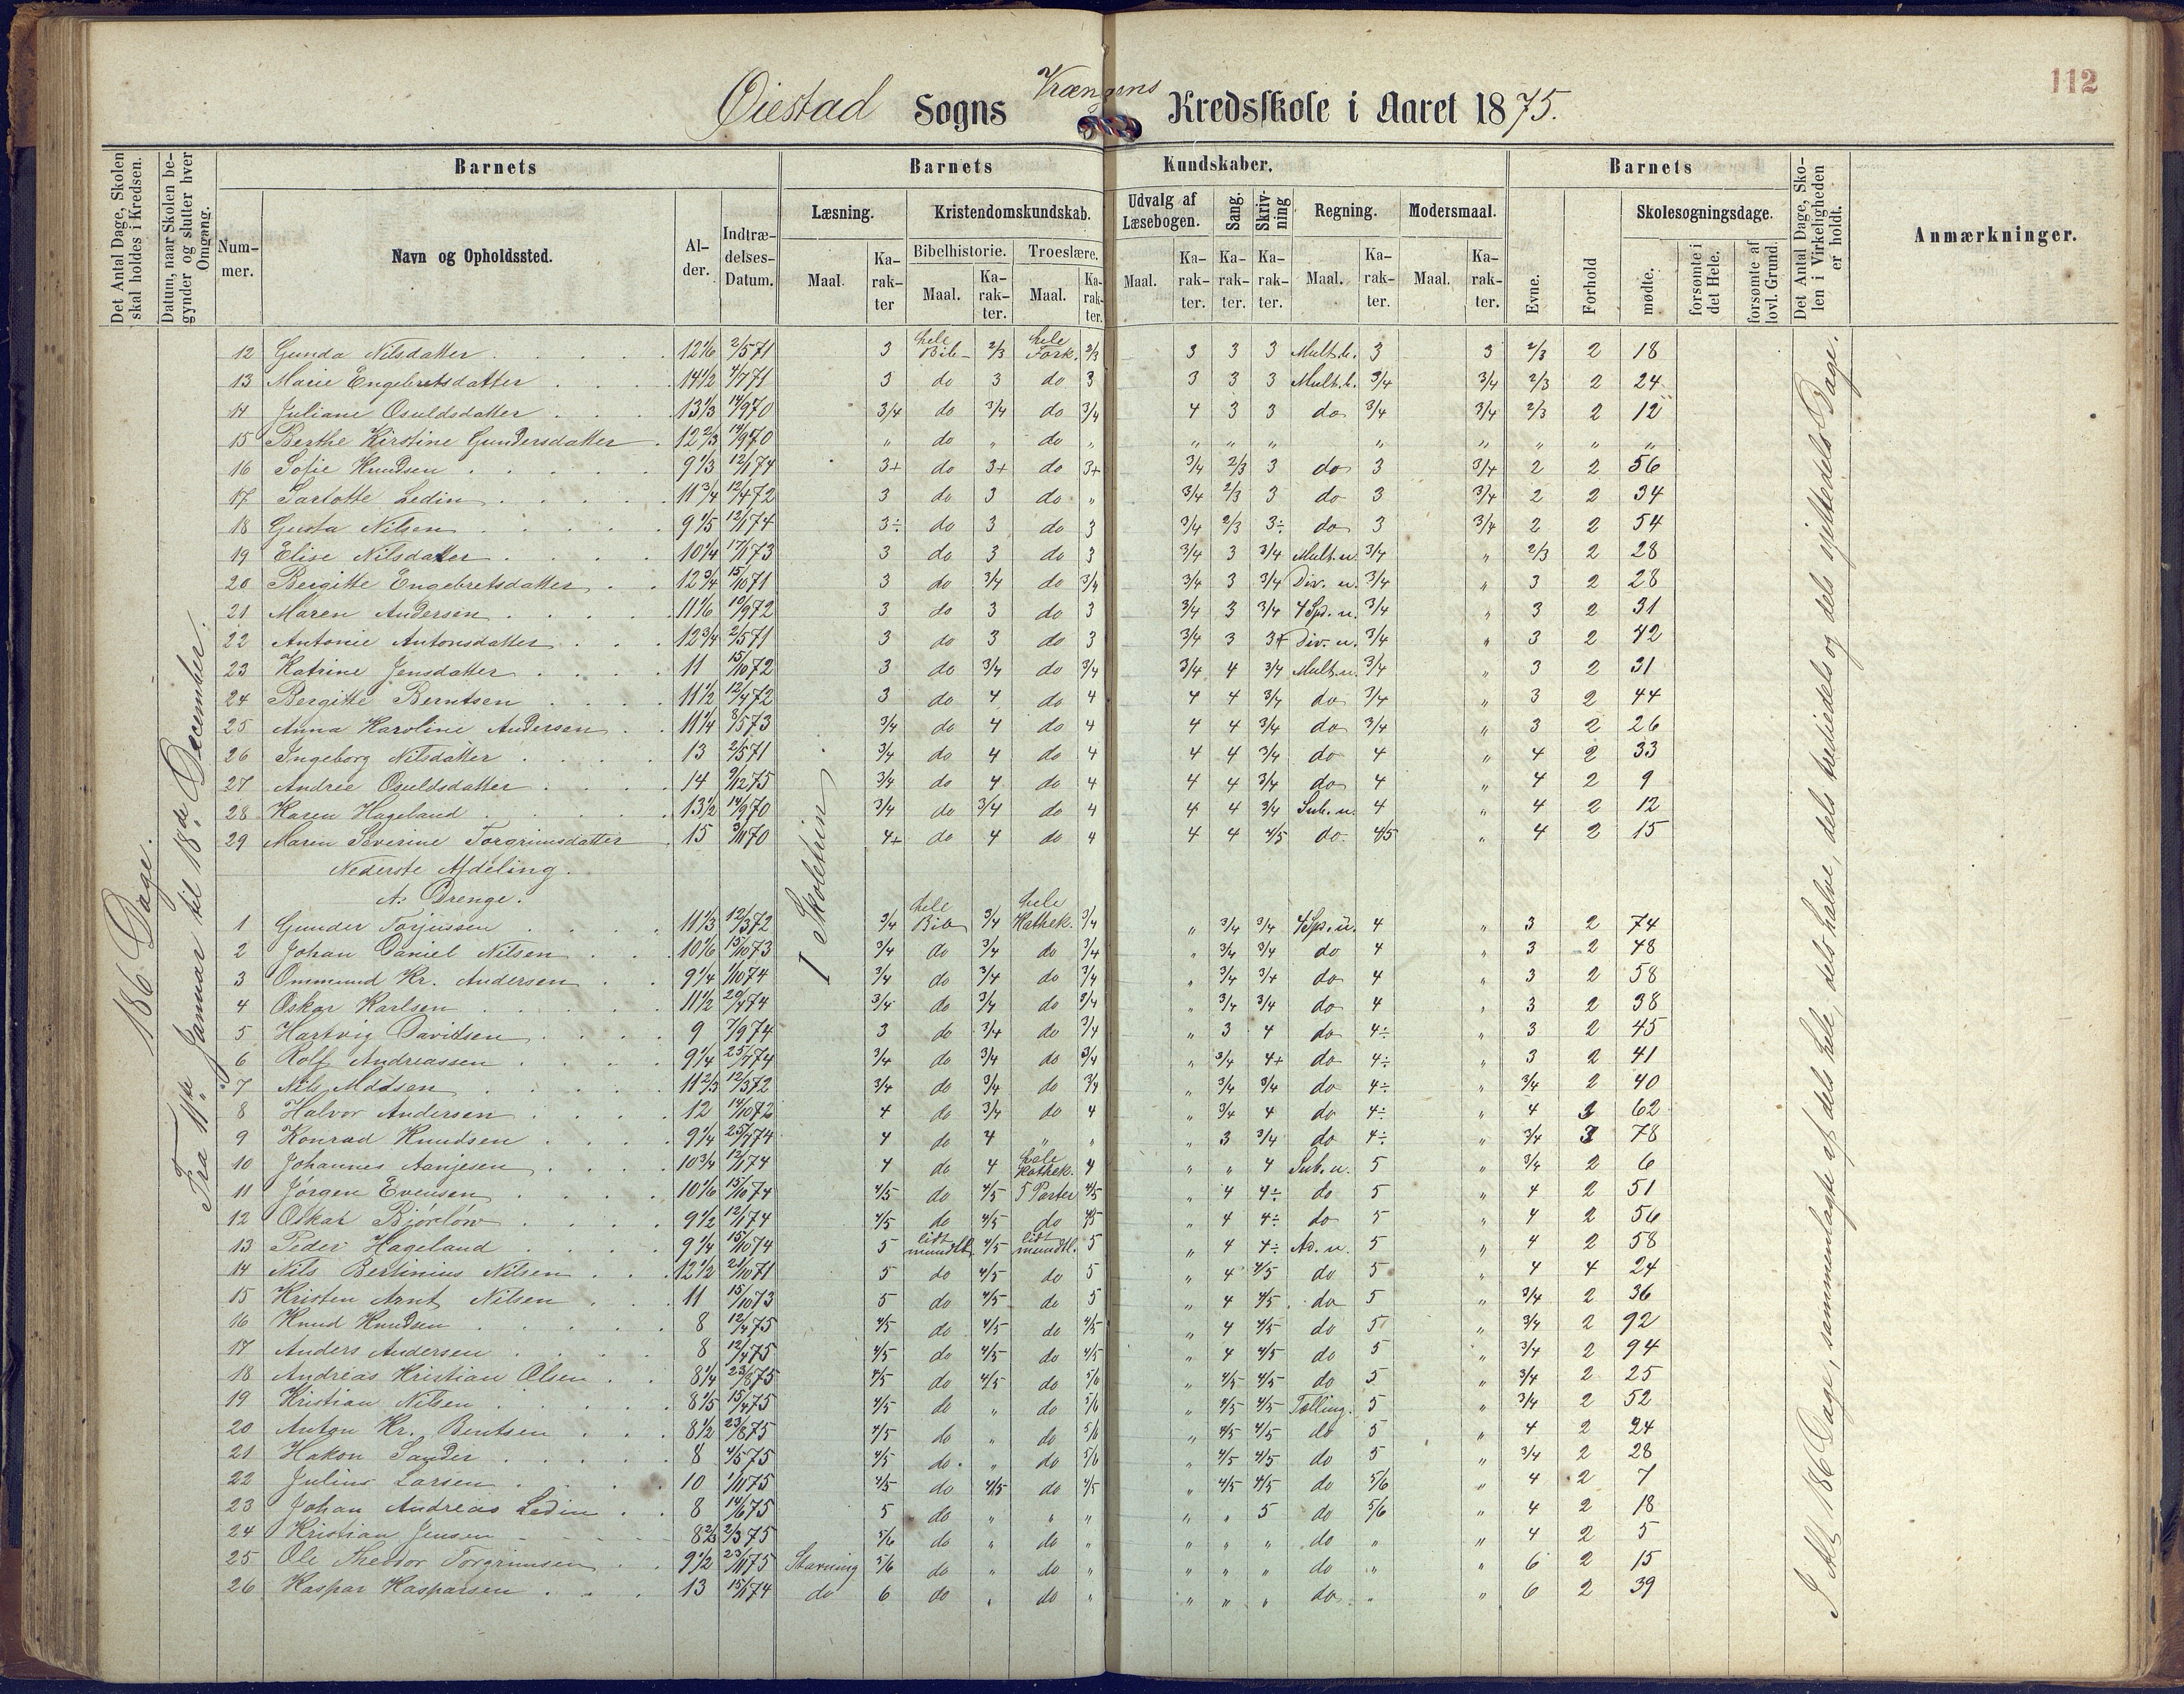 112
Øiestad Sogns Vrængens Kredsskole i Aaret 1875.
Det Antal Dage, Skolen skal holdes i Kredsen.
Datum, naar Skolen begynder og slutter hver Omgang.
Barnets
Barnets Kundskaber.
Barnets
Det Antal Dage, Skolen i Virkeligheden er holdt.
Anmærkninger.
Nummer.
Navn og Opholdssted.
Alder.
Indtrædelses-Datum.
Læsning.
Kristendomskundskab.
Udvalg af Læsebogen.
Sang.
Skrivning
Regning.
Modersmaal.
Evne.
Forhold
Skolesøgningsdage.
Bibelhistorie.
Troeslære.
Maal.
Karakter
Maal.
Karakter.
Maal.
Karakter.
Maal.
Karakter.
Karakter.
Karakter.
Maal.
Karakter.
Maal.
Karakter.
mødte.
forsømte i det Hele.
forsømte af lovl. Grund.
186 Dage.
Fra 11te Januar til 18de December.
I Skoletrin.
I Alt 186 Dage, sammenlagte af dels hele, dels halve, dels trediedels og dels fjerdedels Dage.
12 Gunda Nilsdatter 12 1/6 2/5 71 3 hele Bib. 2/3 hele Fork. 2/3 3 3 3 Mult. b. 3 3 2/3 2 18
13 Marie Engebretsdatter 14 1/2 4/7 71 3 do 3 do 3 3 3 3 Mult. b. 3/4 3/4 2/3 2 24
14 Juliane Osuldsdatter 13 1/3 14/9 70 3/4 do 3/4 do 3/4 4 3 3 do 3/4 3/4 2/3 2 12
15 Berthe Kirstine Gundersdatter 12 2/3 14/9 70 " do " do " " " " " " " " "
16 Sofie Knudsen 9 1/3 12/1 74 3+ do 3+ do 3+ 3/4 2/3 3 do 3 3/4 2 2 56
17 Sarlotte Ledin 11 3/4 12/4 72 3 do 3 do " 3/4 2/3 3 do 3 3/4 2 2 34
18 Gusta Nilsen 9 1/5 12/1 74 3÷ do 3 do 3 3/4 2/3 3÷ do 3 3/4 2 2 54
19 Elise Nilsdatter 10 1/4 17/1 73 3 do 3 do 3 3/4 3 3/4 Mult. u. 3/4 " 2/3 2 28
20 Bergitte Engebretsdatter 12 3/4 15/10 71 3 do 3/4 do 3/4 3/4 3 3/4 Div. u. 3/4 " 3 2 28
21 Maren Andersen 11 1/6 10/9 72 3 do 3 do 3 3/4 3 3/4 4 Sp. u. 3/4 " 3 2 31
22 Antonie Antonsdatter 12 3/4 2/5 71 3 do 3 do 3 3/4 3 Div. u. 3/4 " 3 2 42
23 Katrine Jensdatter 11 15/10 72 3 do 3/4 do 3/4 3/4 4 3/4 Mult. u. 3/4 " 3 2 31
24 Bergitte Berntsen 11 1/2 12/4 72 3 do 4 do 4 4 4 3/4 do 3/4 " 3 2 44
25 Anna Karoline Andersen 11 1/4 8/5 73 3/4 do 4 do 4 4 4 3/4 do 3/4 " 3 2 26
26 Ingeborg Nilsdatter 13 2/5 71 3/4 do 4 do 4 4 4 3/4 do 4 " 4 2 33
27 Andrée Osuldsdatter 14 9/12 75 3/4 do 4 do 4 4 4 3/4 do 4 " 4 2 9
28 Karen Hageland 13 1/2 14/9 70 3/4 do 3/4 do 4 4 4 3/4 Sub. u. 4 " 4 2 12
29 Maren Severine Torgrimsdatter 15 3/11 70 4+ do 4 do 4 4 4 4/5 do. 4/5 " 4 2 15
Nederste Afdeling.
A. Drenge.
1 Gunder Torjussen 11 1/3 12/3 72 3/4 hele Bib 3/4 hele Kathek. 3/4 " 3/4 3/4 4 Sp. u. 4 " 3 2 74
2 Johan Daniel Nilsen 10 1/6 15/10 73 3/4 do 3/4 do 3/4 " 3/4 3/4 do 4 " 3 2 48
3 Ommund Kr. Andersen 9 1/4 1/10 74 3/4 do 3/4 do 3/4 " 3/4 3/4 do 4 " 3 2 58
4 Oskar Karlsen 11 1/2 20/4 74 3/4 do 3/4 do 3/4 " 3/4 3/4 do 4 " 3 2 38
5 Hartvig Davidsen 9 7/9 74 3 do 3/4 do 3/4 " 3 4 do 4÷ " 3 2 45
6 Rolf Andreassen 9 1/4 25/4 74 3/4 do 3/4 do 3/4 " 3/4 4+ do 4÷ " 3 2 41
7 Nils Madsen 11 2/3 12/3 72 3/4 do 3/4 do 3/4 " 3/4 3/4 do 4÷ " 3/4 2 40
8 Halvor Andersen 12 14/10 72 4 do 3/4 do 4 " 3/4 4 do 4÷ " 4 62
9 Konrad Knudsen 9 1/4 25/4 74 4 do 4 " " " 3 3/4 do 4÷ " 3/4 3 78
10 Johannes Aanjesen 10 3/4 12/1 74 4 do 4 hele Kathek. 4 " " 4 Sub. u. 5 " 3/4 2 6
11 Jørgen Evensen 10 1/6 15/10 74 4/5 do 4/5 5 Parter 4/5 " 4 4÷ do 5 " 4 2 51
12 Oskar Bjørløw 9 1/2 12/1 74 4/5 do 4/5 do 4/5 " 4 4÷ do 5 " 4 2 56
13 Peder Hageland 9 1/4 15/10 74 5 lidt mundtl. 4/5 lidt mundtl. 5 " 4 4÷ Ad. u. 5 " 4 2 58
14 Nils Bertinius Nilsen 12 1/2 21/10 71 5 do 4/5 do 5 " 4 4/5 do 5 " 4 4 24
15 Kristen Arnt Nilsen 11 15/10 73 5 do 4/5 do 5 " 4 4/5 do 5 " 3/4 2 36
16 Knud Knudsen 8 12/4 75 4/5 do 4/5 do 4/5 " 4 4/5 do 5 " 3/4 2 92
17 Anders Andersen 8 12/4 75 4/5 do 4/5 do 4/5 " 4 4/5 do 5 " 3/4 2 94
18 Andreas Kristian Olsen 8 1/4 23/8 75 4/5 do 4/5 do 5/6 " 4/5 4/5 do 5 " 3/4 2 25
19 Kristian Nilsen 8 1/5 15/4 75 4/5 do " do 5/6 " 4/5 4/5 Tælling. 5 " 3/4 2 52
20 Anton Kr. Bentsen 8 1/2 23/8 75 4/5 do " do 5/6 " 4/5 4/5 do 5 " 4 2 24
21 Hakon Sander 8 4/5 75 4/5 do. " do 5/6 " 4/5 4/5 do 5 " 3/4 2 28
22 Julius Larsen 10 1/11 75 4/5 do 4/5 do 4/5 " 4/5 4/5 do 5/6 " 4 2 7
23 Johan Andreas Ledin 8 14/6 75 5 do " " " " " 5 do 5/6 " 4 2 18
24 Kristian Jensen 8 2/3 2/3 75 5/6 do " do " " " " do " " 4 2 5
25 Ole Theodor Torgrimsen 9 1/2 23/11 75 Stavning 5/6 do " do " " " " do " " 6 2 15
26 Kaspar Kasparsen 13 15/1 74 do 6 do " do " " " " do " " 6 2 39